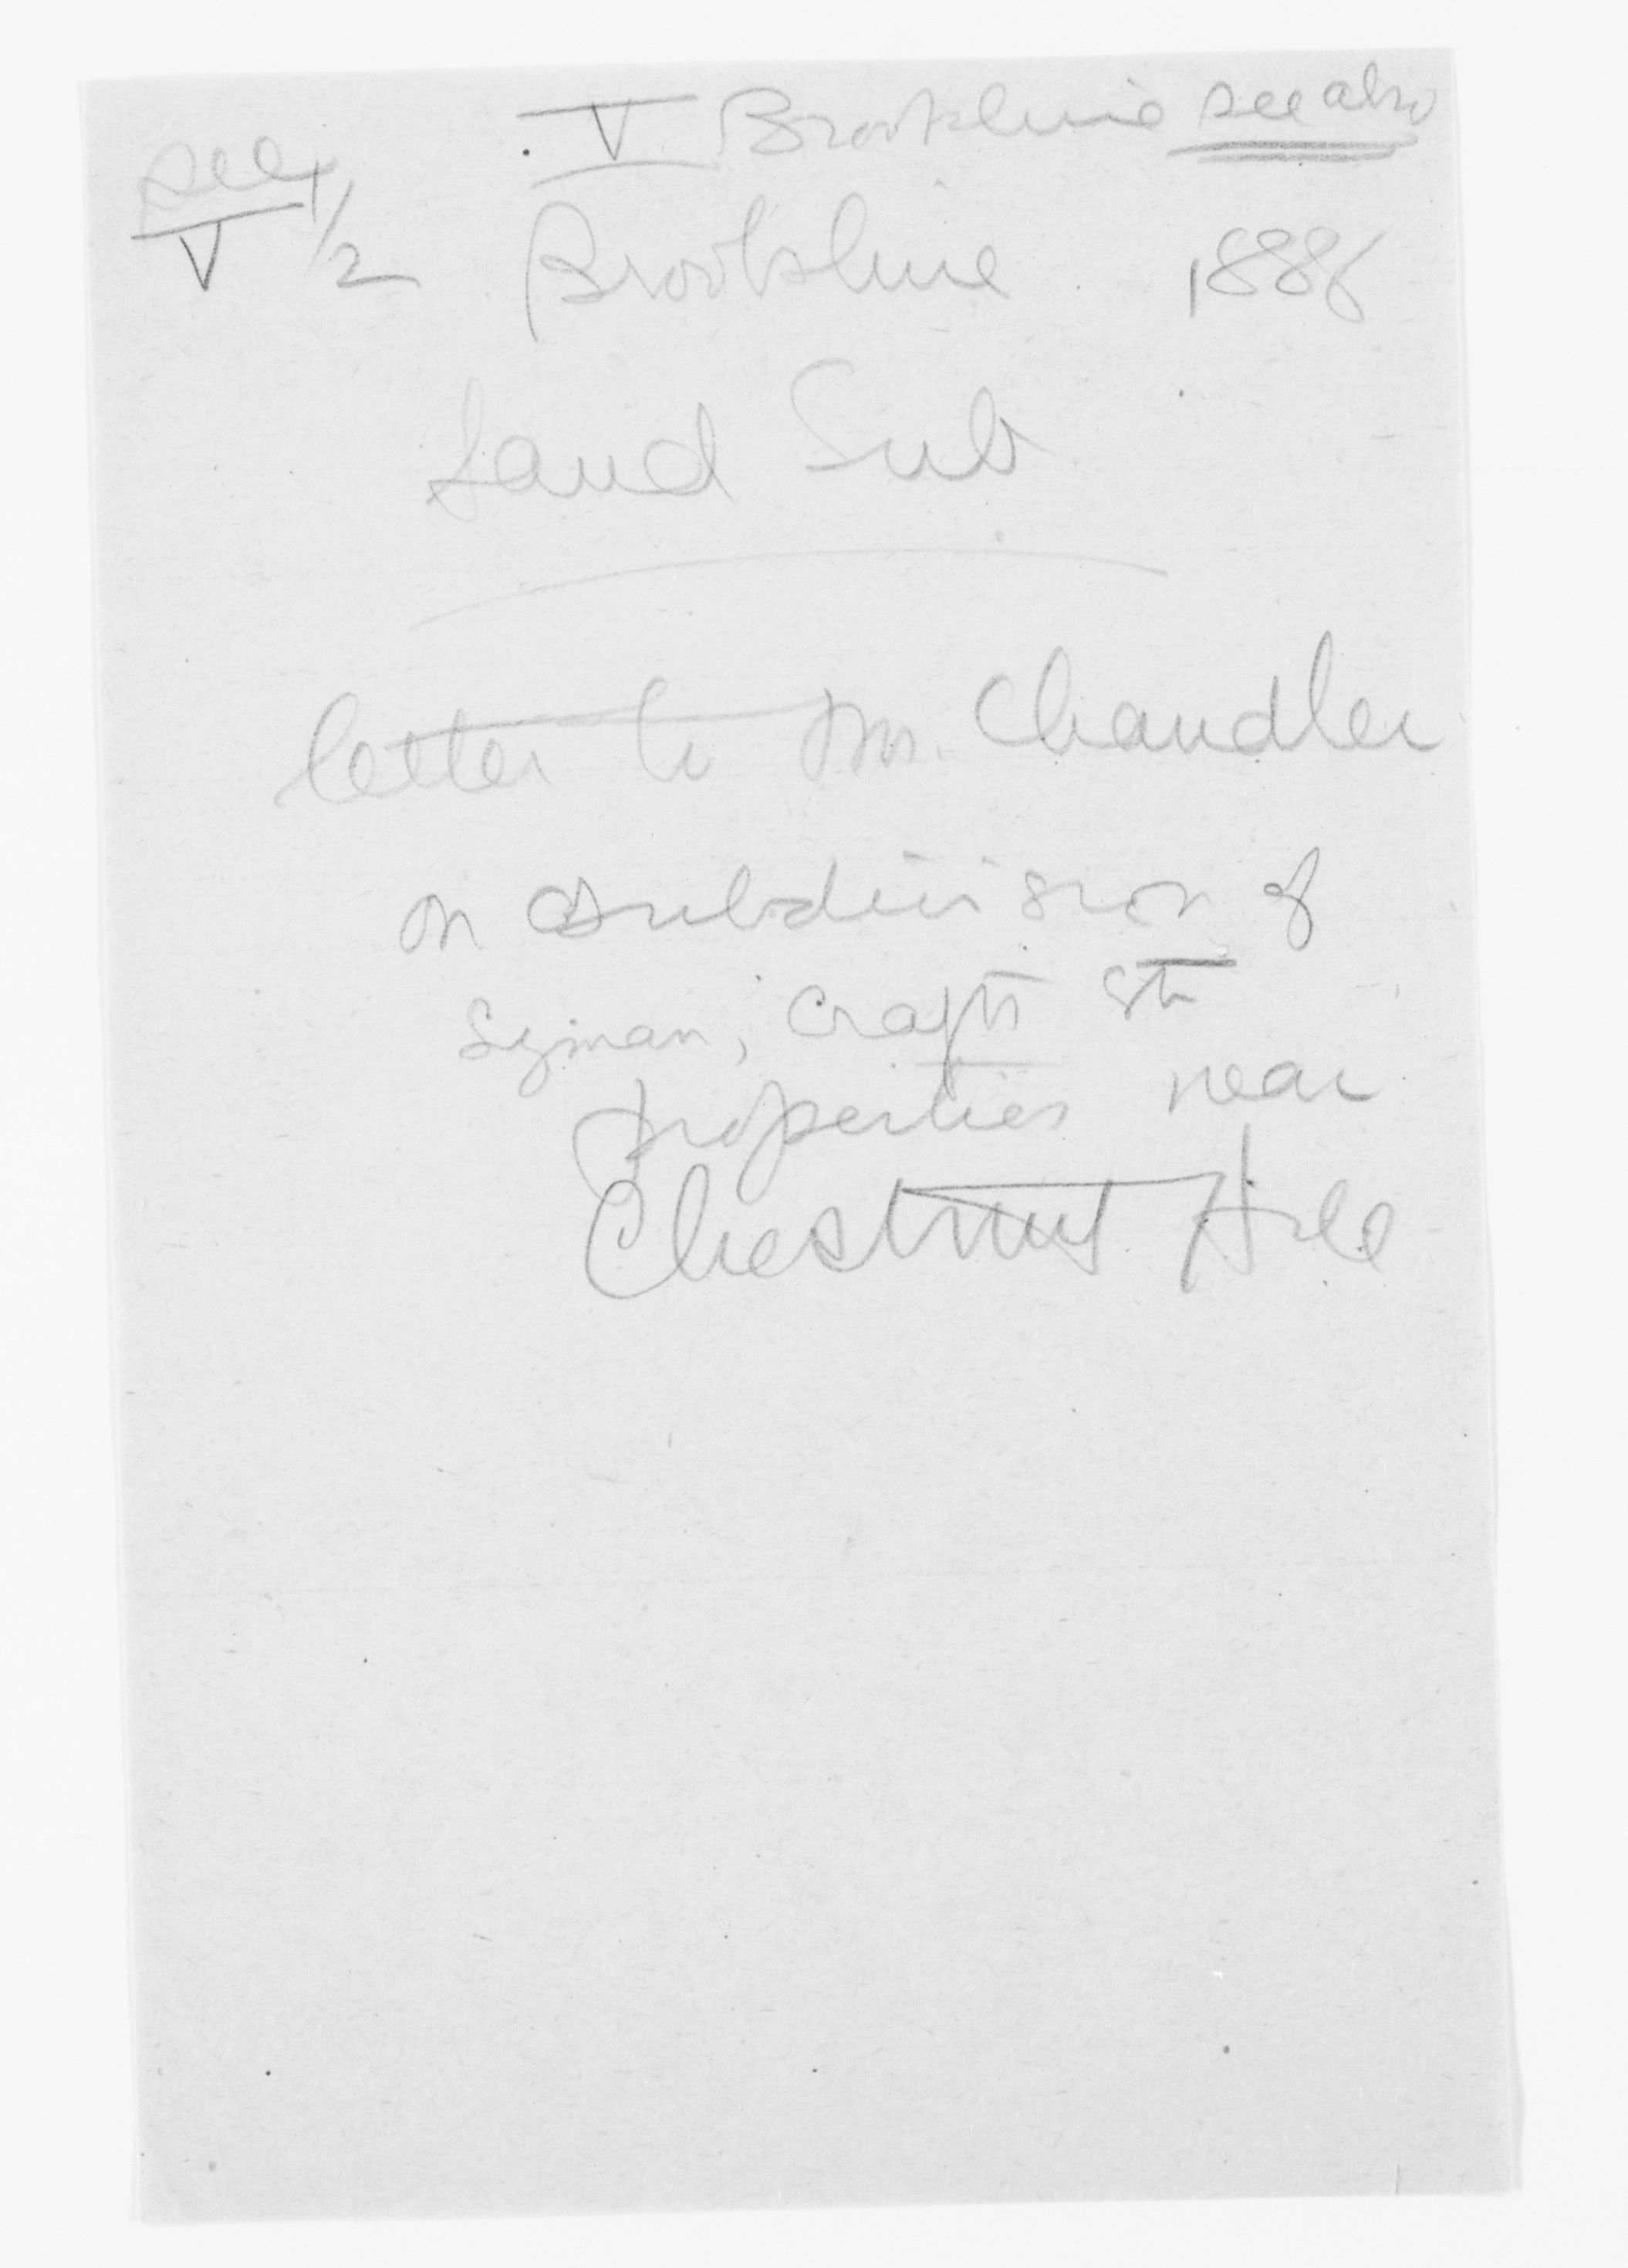 V Brookline see also
see V 1/2 Brookline 1886
Land Sub
letter to Mr. Chandler
on subdivision of
Lyman, Crafts
properties near
Chestnut Hill